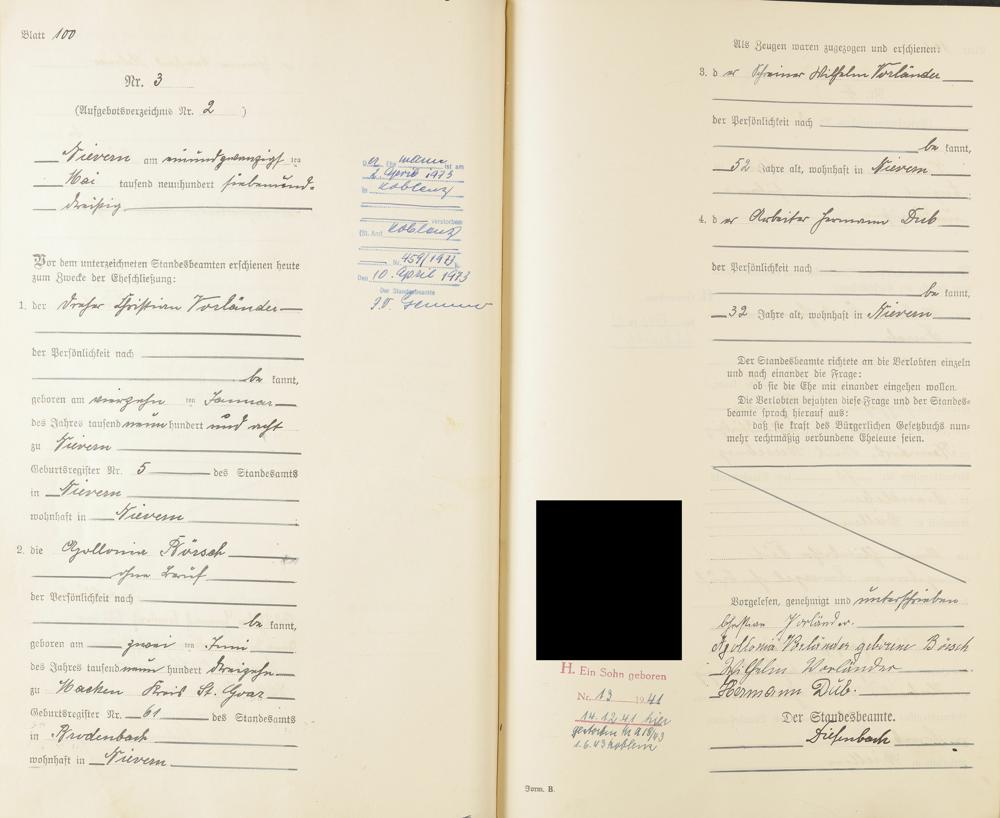 Blatt 100
Nr. 3
(Aufgebotsverzeichnis Nr. 2 )
Nievern am einundzwanzigsten
Mai tausend neunhundert siebenund-
dreißig
Vor dem unterzeichneten Standesbeamten erschienen heute
zum Zwecke der Eheschließung:
1. der Dreher Christian Vorländer
der Persönlichkeit nach
be kannt,
geboren am vierzehn ten Januar
des Jahres tausend neun hundert und acht
zu Nievern
Geburtsregister Nr. 5 des Standesamts
in Nievern
wohnhaft in Nievern
2. die Apollonia Börsch
ohne Beruf
der Persönlichkeit nach
be kannt,
geboren am zwei ten Juni
des Jahres tausend neun hundert dreizehn
zu Macken Kreis St. Goar
Geburtsregister Nr. 61 des Standesamts
in Brodenbach
wohnhaft in Nievern
Ehemann ist am
2. April 1973
in Koblenz
verstorben
(St. Amt Koblenz
Nr. 459/1973
Den 10. April 1973
Der Standesbeamte
Als Zeugen waren zugezogen und erschienen:
3. d er Schreiner Wilhelm Vorländer
der Persönlichkeit nach
be kannt,
52 Jahre alt, wohnhaft in Nievern
4. d er Arbeiter Hermann Dub
der Persönlichkeit nach
be kannt,
32 Jahre alt, wohnhaft in Nievern
Der Standesbeamte richtete an die Verlobten einzeln
und nach einander die Frage:
ob sie die Ehe mit einander eingehen wollen.
Die Verlobten bejahten diese Frage und der Standes-
beamte sprach hierauf aus:
daß sie kraft des Bürgerlichen Gesetzbuchs nun-
mehr rechtmäßig verbundene Eheleute seien.
Vorgelesen, genehmigt und unterschrieben
Christian Vorländer.
Apollonia Vorländer geborene Börsch
Wilhelm Vorländer
Hermann Dub.
Der Standesbeamte.
Diefenbach
H. Ein Sohn geboren
Nr. 13 1941
14.12.41 hier
gestorben
1.6.43 Koblenz
Form. B.